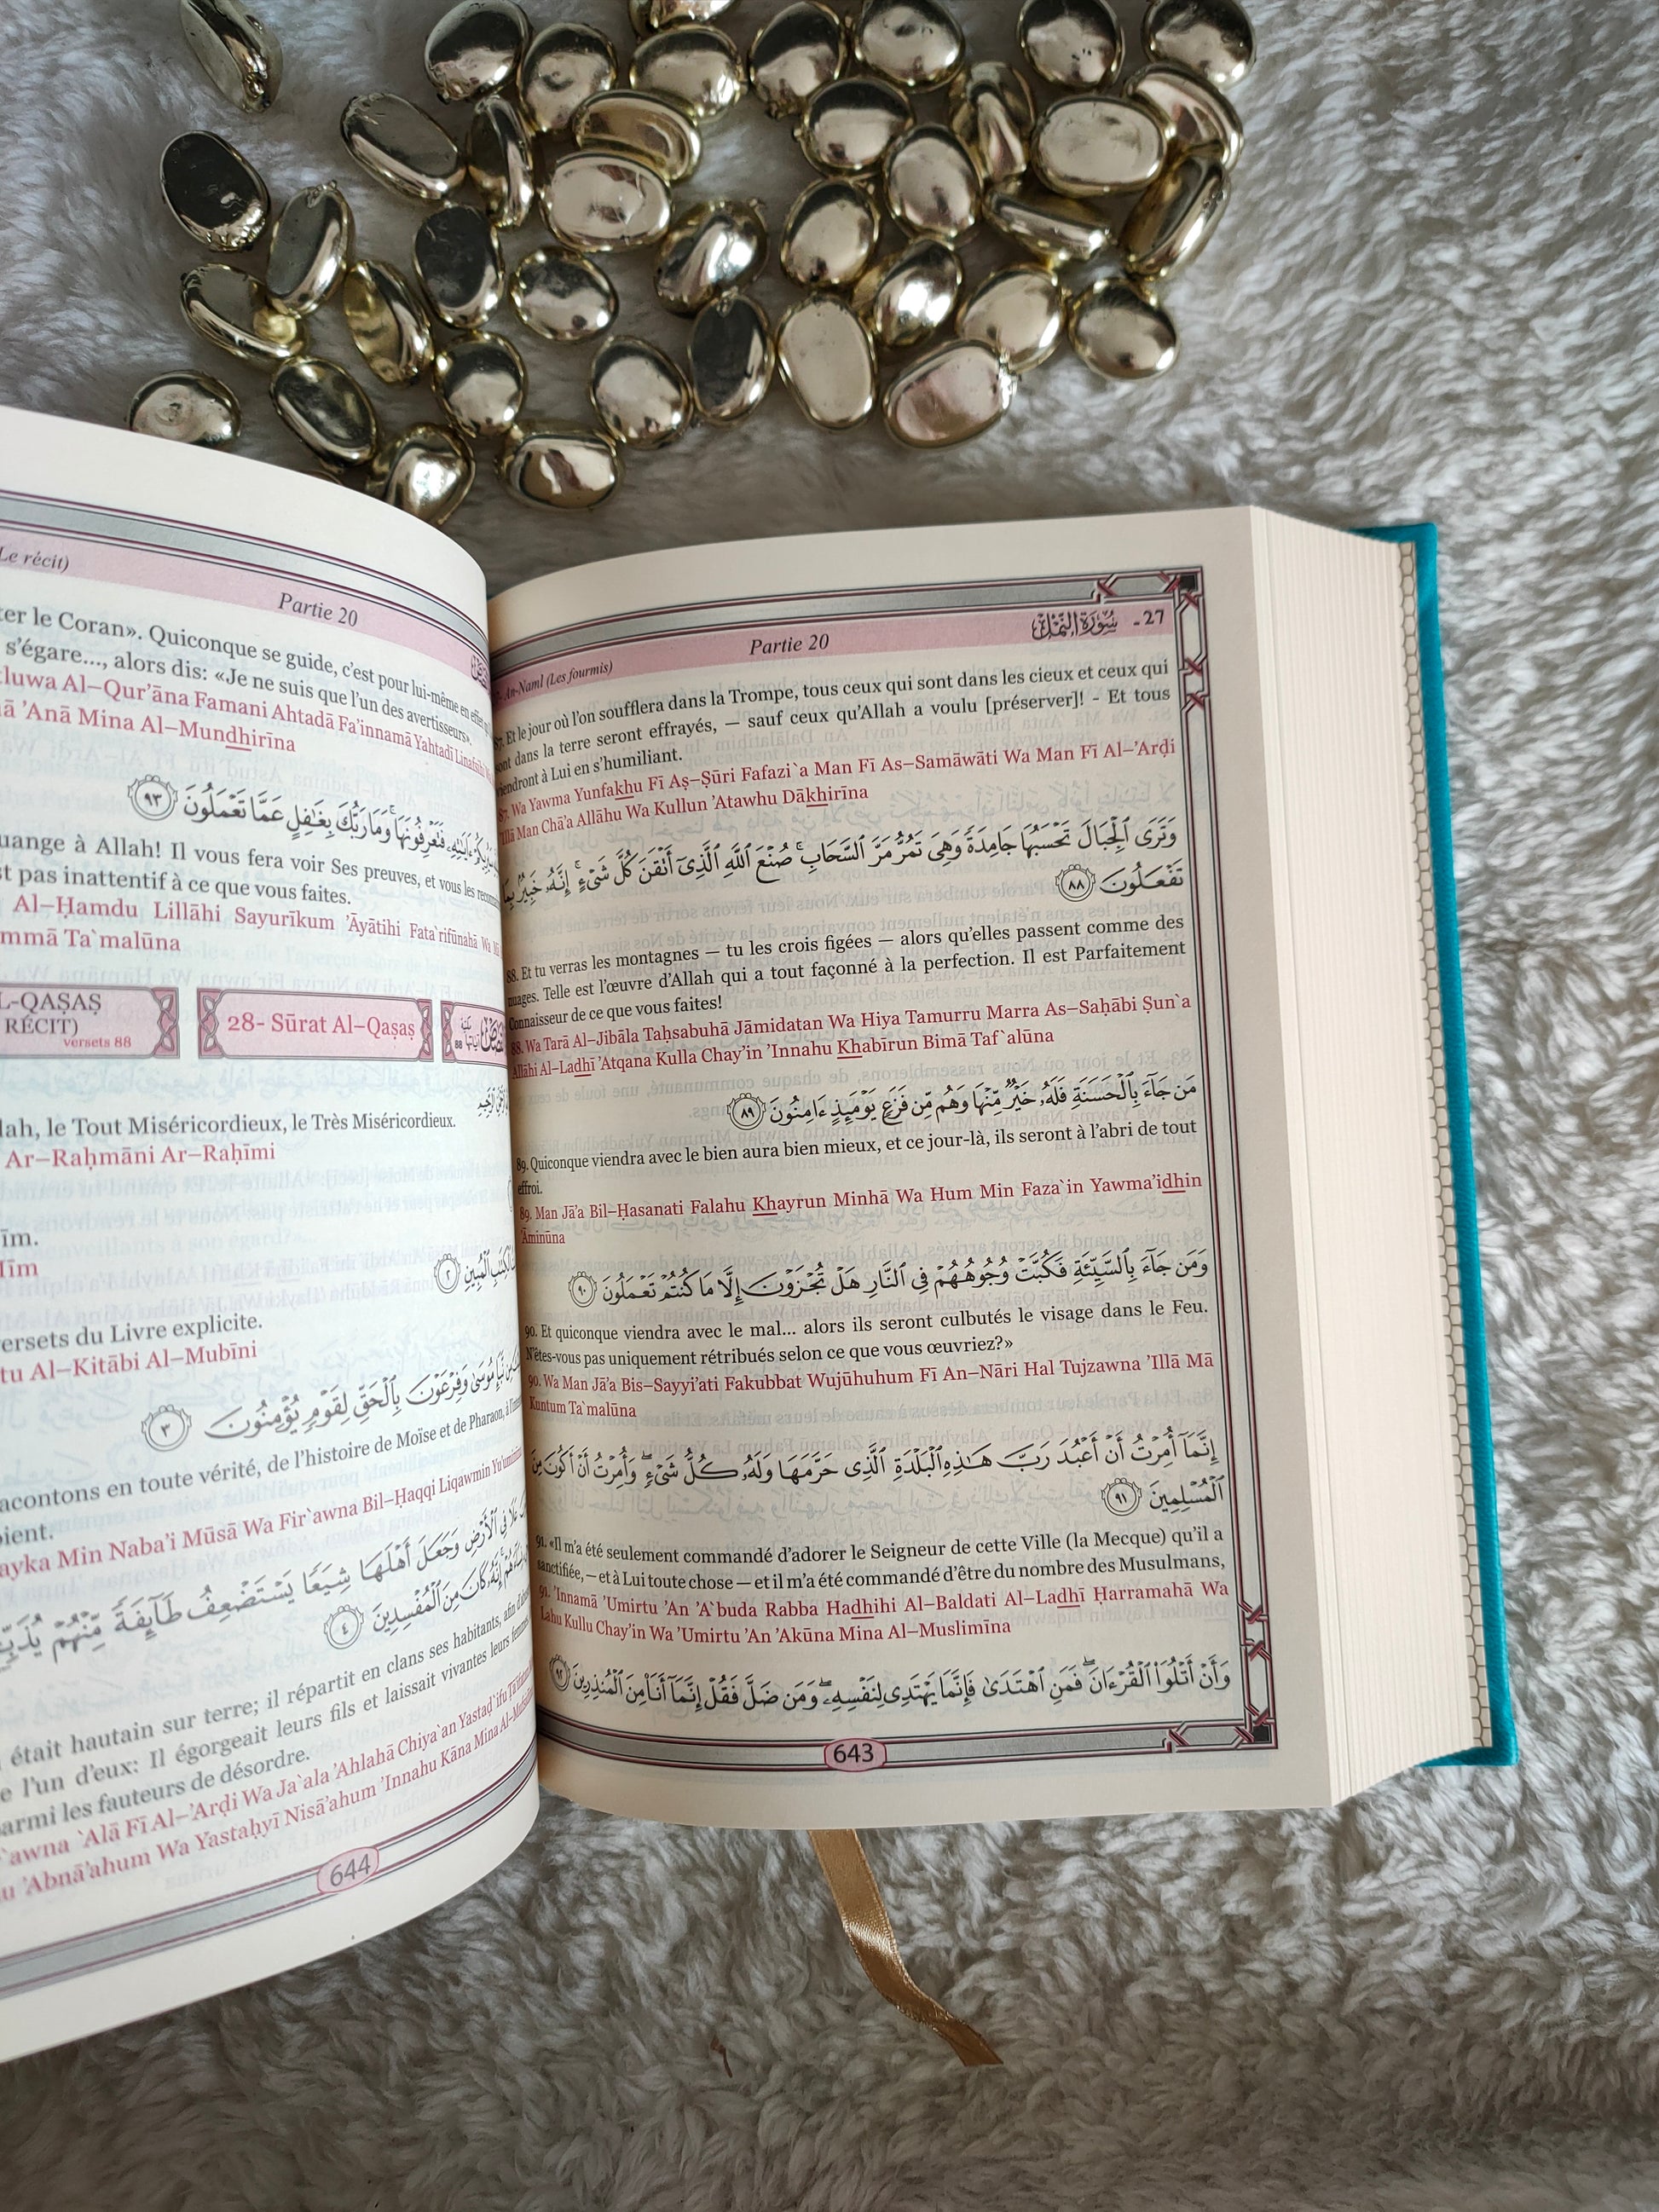 An-Naml (Les fourmis) Partie 20 سُورَةُ النَّمْلِ - 27
87. Et le jour où l'on soufflera dans la Trompe, tous ceux qui sont dans les cieux et ceux qui
sont dans la terre seront effrayés, — sauf ceux qu'Allah a voulu [préserver]! - Et tous
viendront à Lui en s'humiliant.
87. Wa Yawma Yunfakhu Fī Aṣ–Ṣūri Fafazi`a Man Fī As–Samāwāti Wa Man Fī Al–'Arḍi
'Illā Man Chā'a Allāhu Wa Kullun 'Atawhu Dākhirīna
وَتَرَى ٱلْجِبَالَ تَحْسَبُهَا جَامِدَةً وَهِىَ تَمُرُّ مَرَّ ٱلسَّحَابِ ۚ صُنْعَ ٱللَّهِ ٱلَّذِىٓ أَتْقَنَ كُلَّ شَىْءٍ ۚ إِنَّهُۥ خَبِيرٌۢ بِمَا
تَفْعَلُونَ ٨٨
88. Et tu verras les montagnes — tu les crois figées — alors qu'elles passent comme des
nuages. Telle est l'œuvre d'Allah qui a tout façonné à la perfection. Il est Parfaitement
Connaisseur de ce que vous faites!
88. Wa Tará Al–Jibāla Taḥsabuhā Jāmidatan Wa Hiya Tamurru Marra As–Saḥābi Ṣun`a
Allāhi Al–Ladhī 'Atqana Kulla Chay'in 'Innahu Khabīrun Bimā Taf`alūna
مَن جَآءَ بِٱلْحَسَنَةِ فَلَهُۥ خَيْرٌ مِّنْهَا وَهُم مِّن فَزَعٍ يَوْمَئِذٍ ءَامِنُونَ ٨٩
89. Quiconque viendra avec le bien aura bien mieux, et ce jour-là, ils seront à l'abri de tout
effroi.
89. Man Jā'a Bil–Ḥasanati Falahu Khayrun Minhā Wa Hum Min Faza`in Yawma'idhin
'Āminūna
وَمَن جَآءَ بِٱلسَّيِّئَةِ فَكُبَّتْ وُجُوهُهُمْ فِى ٱلنَّارِ هَلْ تُجْزَوْنَ إِلَّا مَا كُنتُمْ تَعْمَلُونَ ٩٠
90. Et quiconque viendra avec le mal... alors ils seront culbutés le visage dans le Feu.
N'êtes-vous pas uniquement rétribués selon ce que vous œuvriez?»
90. Wa Man Jā'a Bis–Sayyi'ati Fakubbat Wujūhuhum Fī An–Nāri Hal Tujzawna 'Illā Mā
Kuntum Ta`malūna
إِنَّمَآ أُمِرْتُ أَنْ أَعْبُدَ رَبَّ هَـٰذِهِ ٱلْبَلْدَةِ ٱلَّذِى حَرَّمَهَا وَلَهُۥ كُلُّ شَىْءٍ ۖ وَأُمِرْتُ أَنْ أَكُونَ مِنَ
ٱلْمُسْلِمِينَ ٩١
91. «Il m'a été seulement commandé d'adorer le Seigneur de cette Ville (la Mecque) qu'il a
sanctifiée, — et à Lui toute chose — et il m'a été commandé d'être du nombre des Musulmans,
91. 'Innamā 'Umirtu 'An 'A`buda Rabba Hadhihi Al–Baldati Al–Ladhī Ḥarramahā Wa
Lahu Kullu Chay'in Wa 'Umirtu 'An 'Akūna Mina Al–Muslimīna
وَأَنْ أَتْلُوَا۟ ٱلْقُرْءَانَ ۖ فَمَنِ ٱهْتَدَىٰ فَإِنَّمَا يَهْتَدِى لِنَفْسِهِۦ ۖ وَمَن ضَلَّ فَقُلْ إِنَّمَآ أَنَا۠ مِنَ ٱلْمُنذِرِينَ ٩٢
643
Le récit) Partie 20
ter le Coran». Quiconque se guide, c'est pour lui-même en effet
s'égare..., alors dis: «Je ne suis que l'un des avertisseurs».
tluwa Al–Qur'āna Famani Ahtadá Fa'innamā Yahtadī Linafsihi
'Anā Mina Al–Mundhirīna
فَتَعْرِفُونَهَا ۚ وَمَا رَبُّكَ بِغَـٰفِلٍ عَمَّا تَعْمَلُونَ ٩٣
uange à Allah! Il vous fera voir Ses preuves, et vous les
st pas inattentif à ce que vous faites.
Al–Ḥamdu Lillāhi Sayurīkum 'Āyātihi Fata`rifūnahā Wa
mmā Ta`malūna
L-QAṢAṢ
RÉCIT)
versets 88
28- Sūrat Al–Qaṣaṣ
lah, le Tout Miséricordieux, le Très Miséricordieux.
Ar–Raḥmāni Ar–Raḥīmi
īm.
īm
ٱلْكِتَـٰبِ ٱلْمُبِينِ ٢
ersets du Livre explicite.
tu Al–Kitābi Al–Mubīni
مِن نَّبَإِ مُوسَىٰ وَفِرْعَوْنَ بِٱلْحَقِّ لِقَوْمٍ يُؤْمِنُونَ ٣
acontons en toute vérité, de l'histoire de Moïse et de Pharaon,
oient.
ayka Min Naba'i Mūsá Wa Fir`awna Bil–Ḥaqqi Liqawmin Yu'uminūna
عَلَا فِى ٱلْأَرْضِ وَجَعَلَ أَهْلَهَا شِيَعًا يَسْتَضْعِفُ طَآئِفَةً مِّنْهُمْ
إِنَّهُۥ كَانَ مِنَ ٱلْمُفْسِدِينَ ٤
était hautain sur terre; il répartit en clans ses habitants, afin
l'un d'eux: Il égorgeait leurs fils et laissait vivantes leurs
armi les fauteurs de désordre.
`awna `Alā Fī Al–'Arḍi Wa Ja`ala 'Ahlahā Chiya`an Yastaḍ`ifu
'Abnā'ahum Wa Yastaḥyī Nisā'ahum 'Innahu Kāna Mina
644